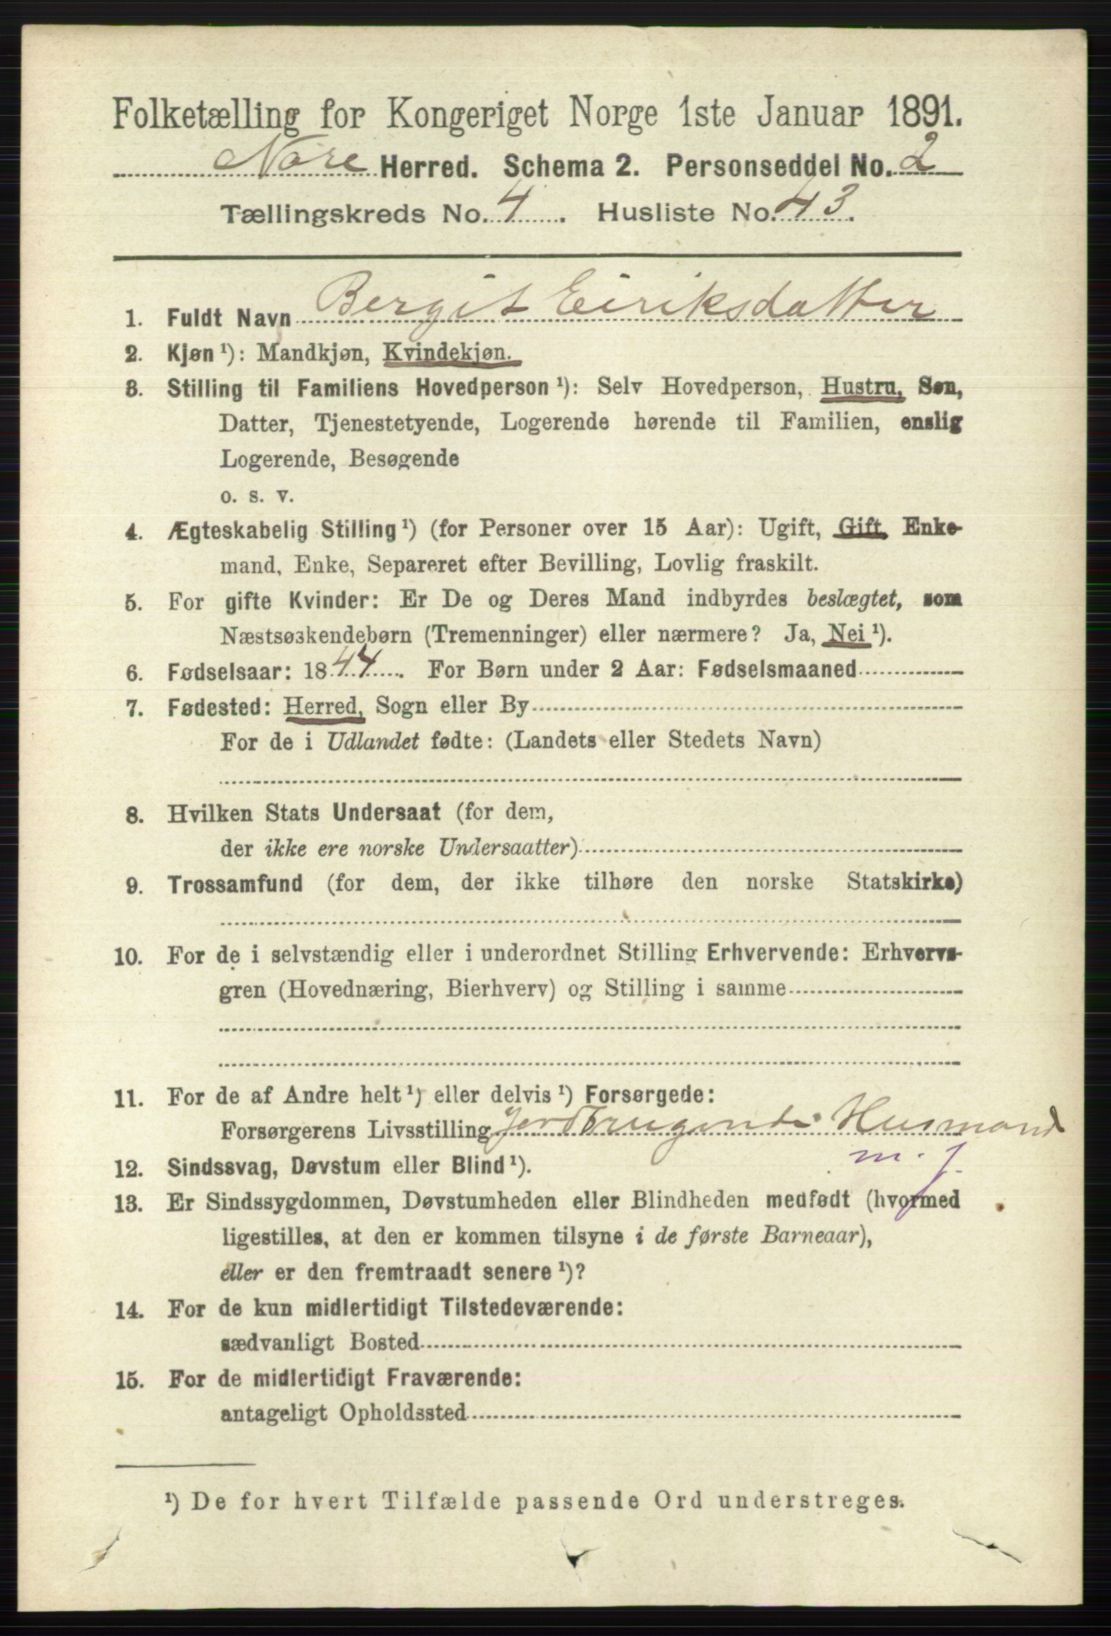 Folketælling for Kongeriget Norge 1ste Januar 1891.
Nore Herred. Schema 2. Personseddel No. 2
Tællingskreds No. 4. Husliste No. 43.
1. Fuldt Navn Bergit Eiriksdatter
2. Kjøn ¹): Mandkjøn, Kvindekjøn.
3. Stilling til Familiens Hovedperson ¹): Selv Hovedperson, Hustru, Søn,
Datter, Tjenestetyende, Logerende hørende til Familien, enslig
Logerende, Besøgende
o. s. v.
4. Ægteskabelig Stilling ¹) (for Personer over 15 Aar): Ugift, Gift, Enke-
mand, Enke, Separeret efter Bevilling, Lovlig fraskilt.
5. For gifte Kvinder: Er De og Deres Mand indbyrdes beslægtet, som
Næstsøskendebørn (Tremenninger) eller nærmere? Ja, Nei ¹).
6. Fødselsaar: 1844. For Børn under 2 Aar: Fødselsmaaned
7. Fødested: Herred, Sogn eller By
For de i Udlandet fødte: (Landets eller Stedets Navn)
8. Hvilken Stats Undersaat (for dem,
der ikke ere norske Undersaatter)
9. Trossamfund (for dem, der ikke tilhøre den norske Statskirke)
10. For de i selvstændig eller i underordnet Stilling Erhvervende: Erhvervs-
gren (Hovednæring, Bierhverv) og Stilling i samme
11. For de af Andre helt ¹) eller delvis ¹) Forsørgede:
Forsørgerens Livsstilling Jordbrugende Husmand
m. j.
12. Sindssvag, Døvstum eller Blind ¹).
13. Er Sindssygdommen, Døvstumheden eller Blindheden medfødt (hvormed
ligestilles, at den er kommen tilsyne i de første Barneaar),
eller er den fremtraadt senere ¹)?
14. For de kun midlertidigt Tilstedeværende:
sædvanligt Bosted
15. For de midlertidigt Fraværende:
antageligt Opholdssted
¹) De for hvert Tilfælde passende Ord understreges.